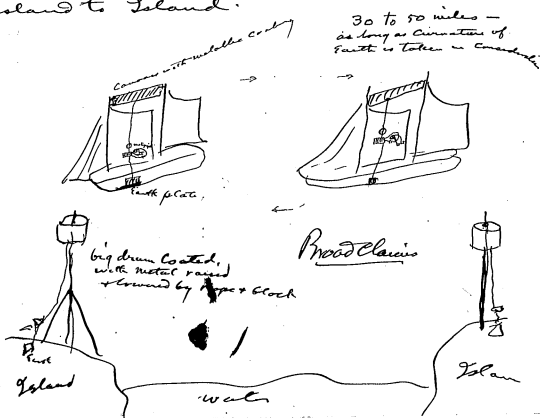 Island to Island.
30 to 50 miles —
as long as Curvature of
Earth is taken in Consideration
Canvas with metallic Coating
Earth plate.
Broad Claims
big drum Coated,
with metal raised
+ lowered by rope + block
Earth
Island
water
Islan